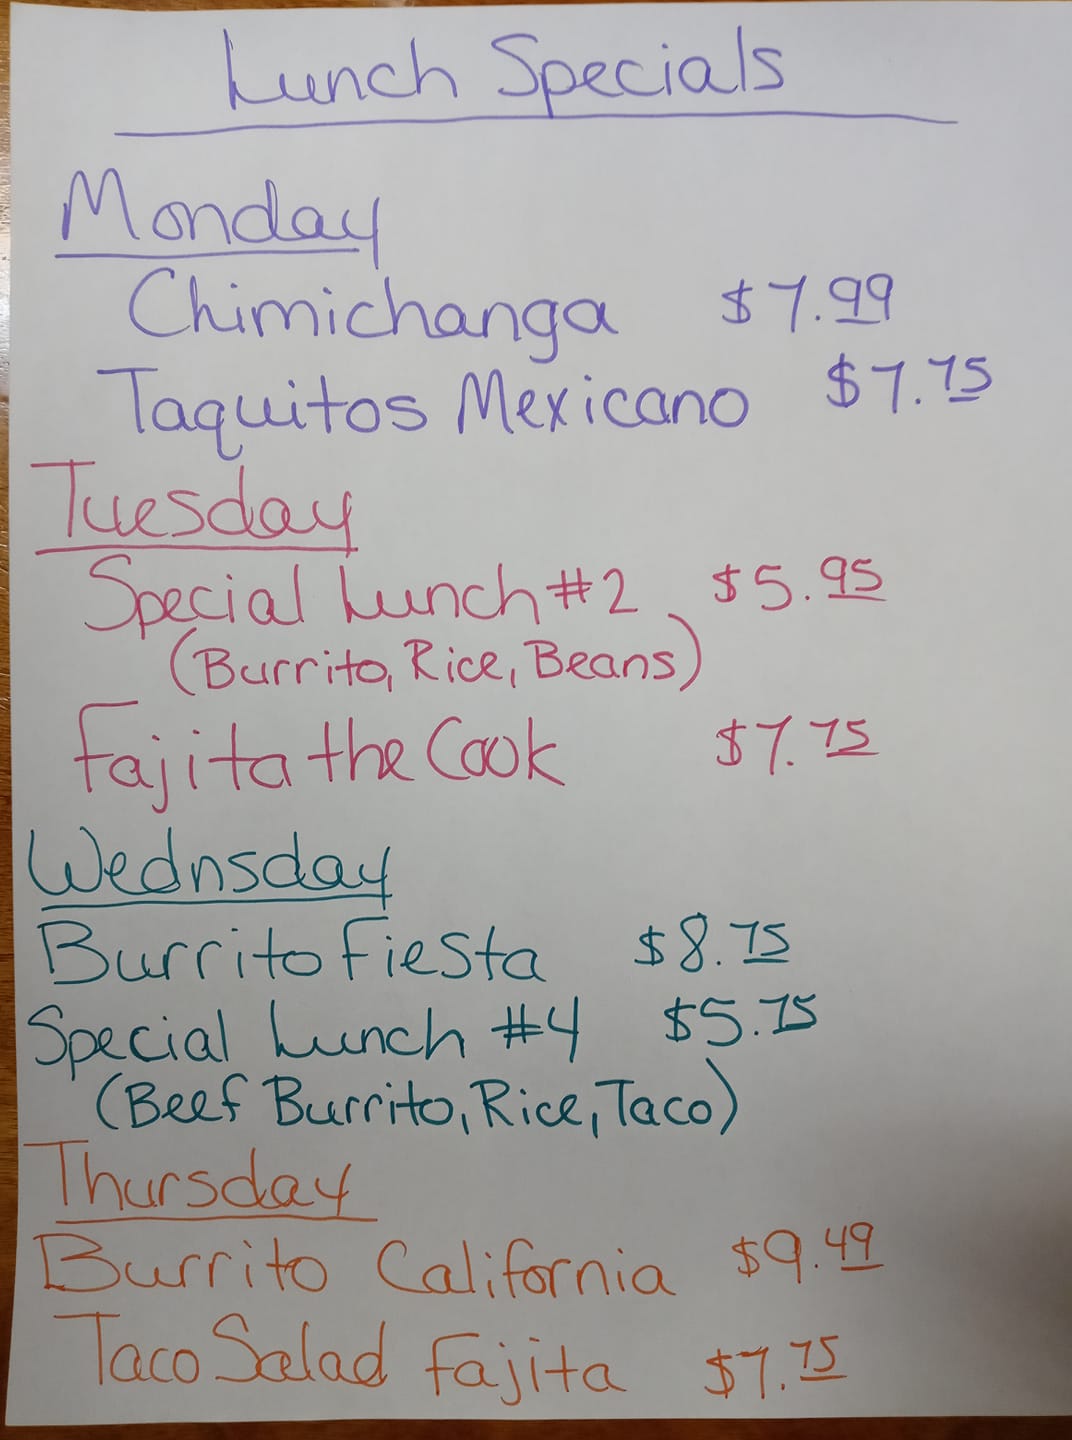 Lunch Specials
Monday
Chimichanga $7.99
Taquitos Mexicano $7.75
Tuesday
Special Lunch #2 $5.95
(Burrito, Rice, Beans)
Fajita the Cook $7.75
Wednsday
Burrito Fiesta $8.75
Special Lunch #4 $5.75
(Beef Burrito, Rice, Taco)
Thursday
Burrito California $9.49
Taco Salad Fajita $7.75